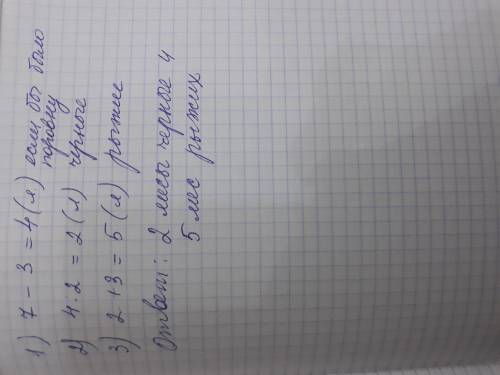 1) 7 - 3 = 4 (л) если бы было
поровну
2) 4 : 2 = 2 (л) черные
3) 2 + 3 = 5 (л) рыжие
Ответ: 2 лисы черные и
5 лис рыжих